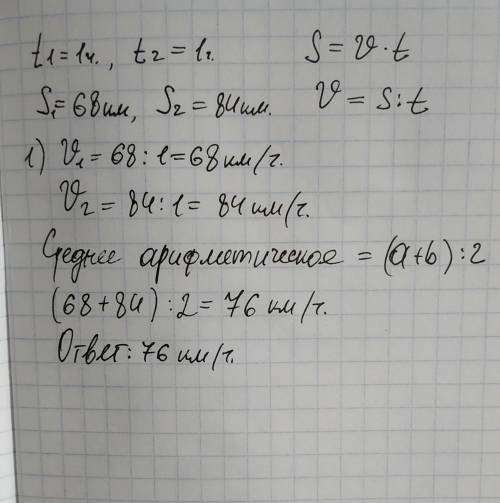 t1 = 1ч., t2 = 1ч.
S = υ · t
S1 = 68 км, S2 = 84 км.
υ = S : t
1) υ1 = 68 : 1 = 68 км/ч.
υ2 = 84 : 1 = 84 км/ч.
Среднее арифметическое = (a+b) : 2
(68 + 84) : 2 = 76 км/ч.
Ответ: 76 км/ч.